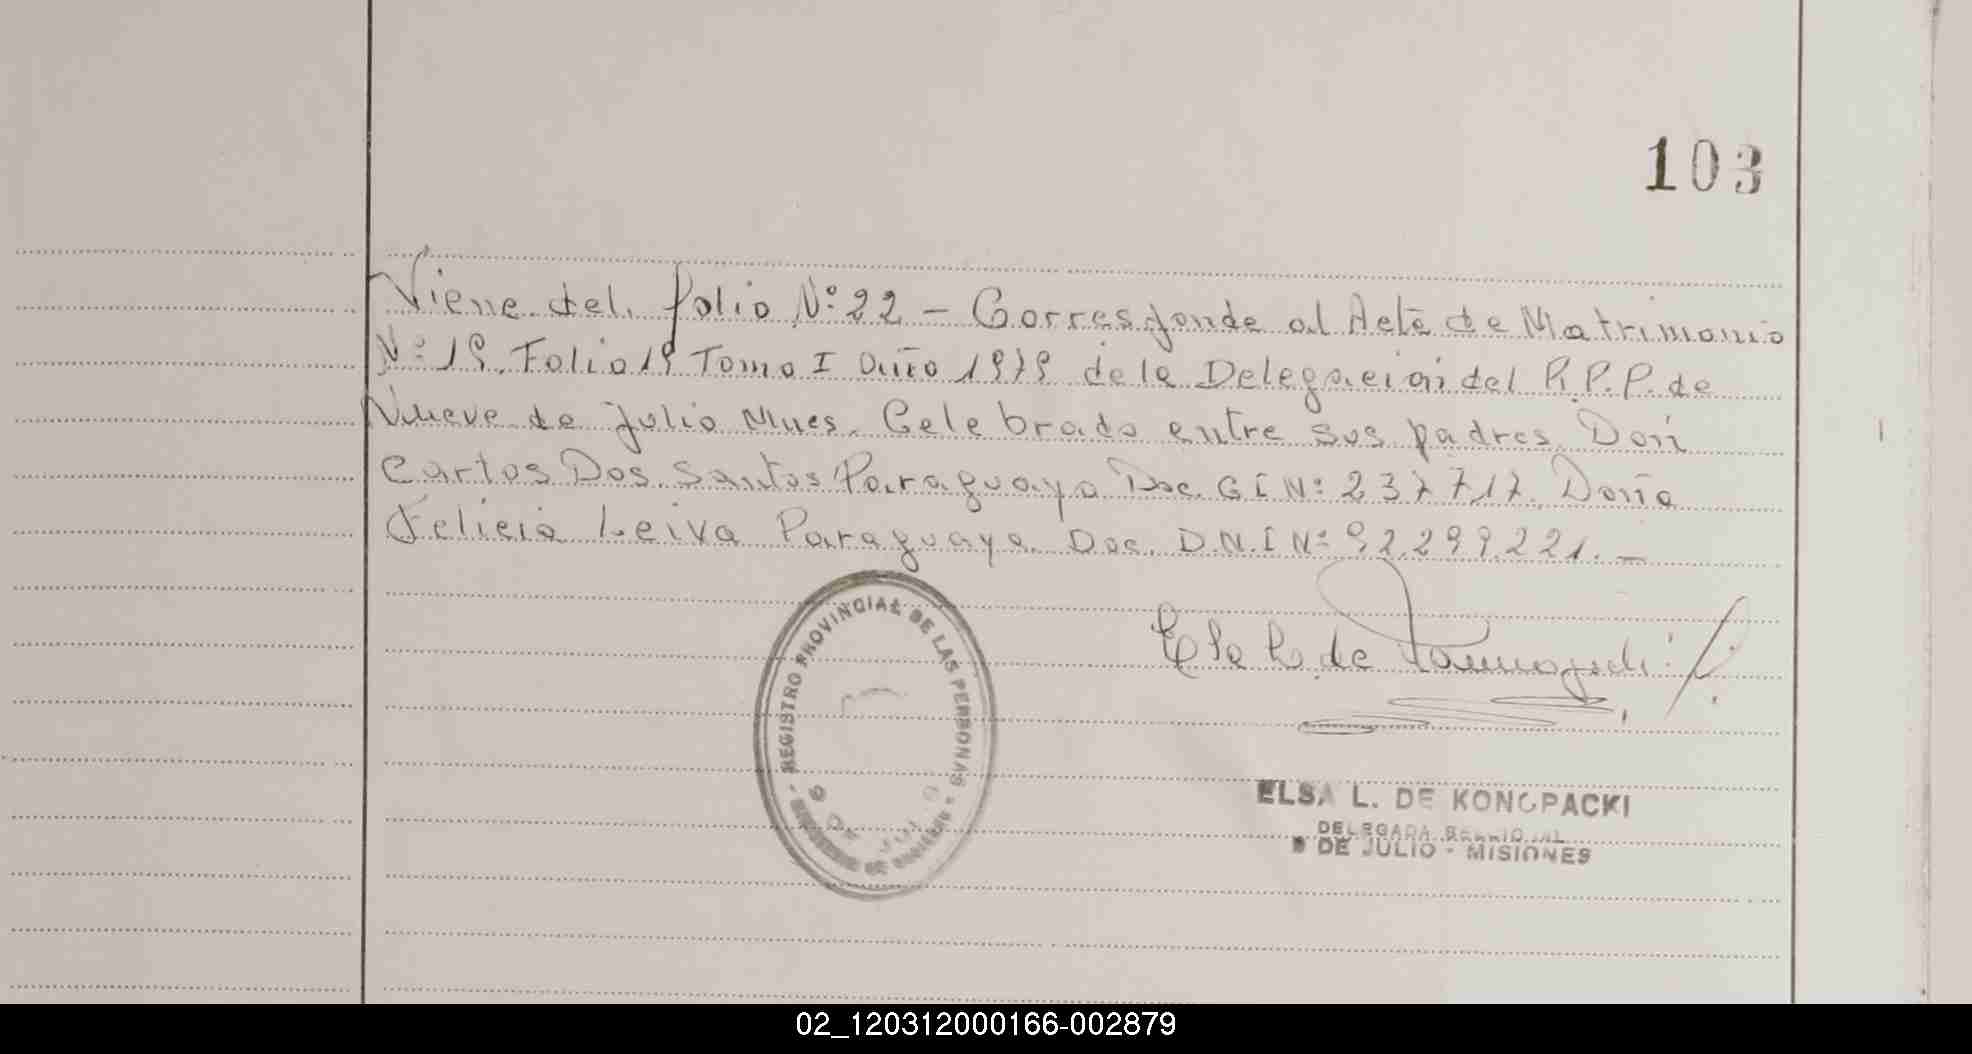 103
Viene del folio Nº 22 - Corresponde al Acta de Matrimonio
Nº 19. Folio 19 Tomo I Año 1979 de la Delegación del R.P.P. de
Nueve de Julio Mnes. Celebrado entre sus padres Don
Carlos Dos Santos Paraguayo Doc. C I Nº 237717. Doña
Felicia Leiva Paraguaya Doc. D.N.I Nº 92.299.221. -
REGISTRO PROVINCIAL DE LAS PERSONAS
9 DE JULIO
Elsa L. de
ELSA L. DE KONOPACKI
DELEGADA
9 DE JULIO - MISIONES
02_120312000166-002879